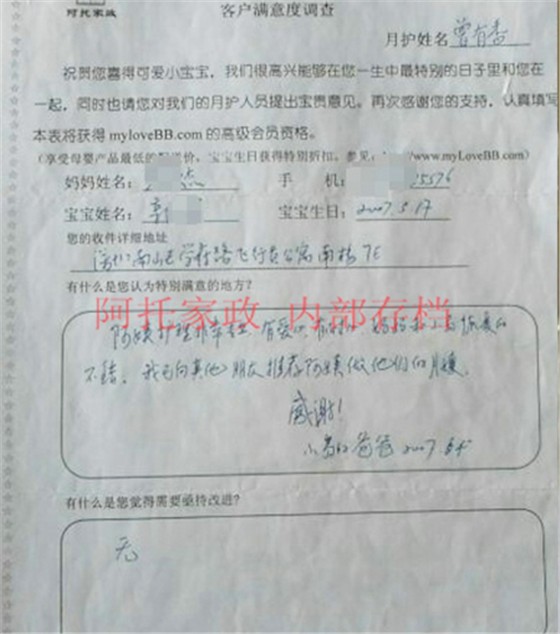 阿托家政
客户满意度调查
月护姓名 曾有香
祝贺您喜得可爱小宝宝，我们很高兴能够在您一生中最特别的日子里和您在
一起，同时也请您对我们的月护人员提出宝贵意见。再次感谢您的支持，认真填写
本表将获得 myloveBB.com 的高级会员资格。
(享受母婴产品最低的 价，宝宝生日获得特别折扣，参见：http://www.myLoveBB.com)
妈妈姓名： 杰 手 机： 25576
宝宝姓名： 宝宝生日：2007.5.17
您的收件详细地址
深圳南山区学府路飞行员公寓南楼7E
有什么是您认为特别满意的地方？
阿托家政 内部存档
阿姨护理非常 有爱心 妈妈和小 恢复的
不错。我已向其他朋友推荐阿姨做他们的月嫂。
感谢！
小 的爸爸 2007.
有什么是您觉得需要亟待改进？
无